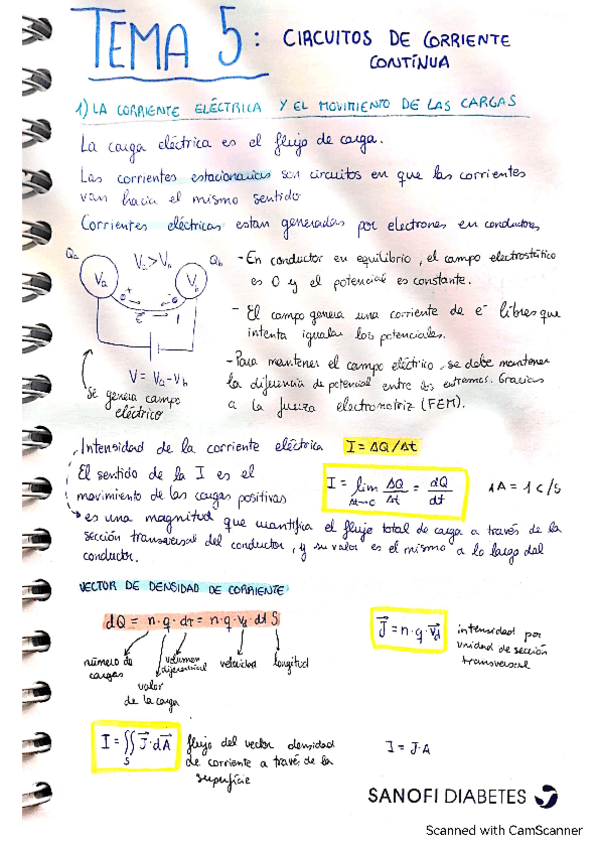 TEMA 5: CIRCUITOS DE CORRIENTE
CONTÍNUA
1) LA CORRIENTE ELÉCTRICA Y EL MOVIMIENTO DE LAS CARGAS
La carga eléctrica es el flujo de carga.
Las corrientes estacionarias son circuitos en que las corrientes
van hacia el mismo sentido
Corrientes eléctricas estan generadas por electrones en conductores
Qa Va>Vb Qb
Va Vb
e⁻ e⁻
E I
V = Va-Vb
Se genera campo
eléctrico
- En conductor en equilibrio, el campo electrostático
es 0 y el potencial es constante.
- El campo genera una corriente de e⁻ libres que
intenta igualar los potenciales.
- Para mantener el campo eléctrico, se debe mantener
la diferencia de potencial entre los extremos. Gracias
a la fuerza electromotriz (FEM).
Intensidad de la corriente eléctrica I = ΔQ/Δt
El sentido de la I es el
movimiento de las cargas positivas
I = lim ΔQ/Δt = dQ/dt 1A = 1 C/S
es una magnitud que cuantifica el flujo total de carga a través de la
sección transversal del conductor, y su valor es el mismo a lo largo del
conductor.
VECTOR DE DENSIDAD DE CORRIENTE
dQ = n·q·dτ = n·q·vd·dt S
número de
cargas
valor
de la carga
volumen
diferencial
velocidad
longitud
J⃗ = n·q·v⃗d intensidad por
unidad de sección
transversal
I = ∬s J⃗·dA⃗ flujo del vector densidad
de corriente a través de la
superficie
I = J·A
SANOFI DIABETES
Scanned with CamScanner